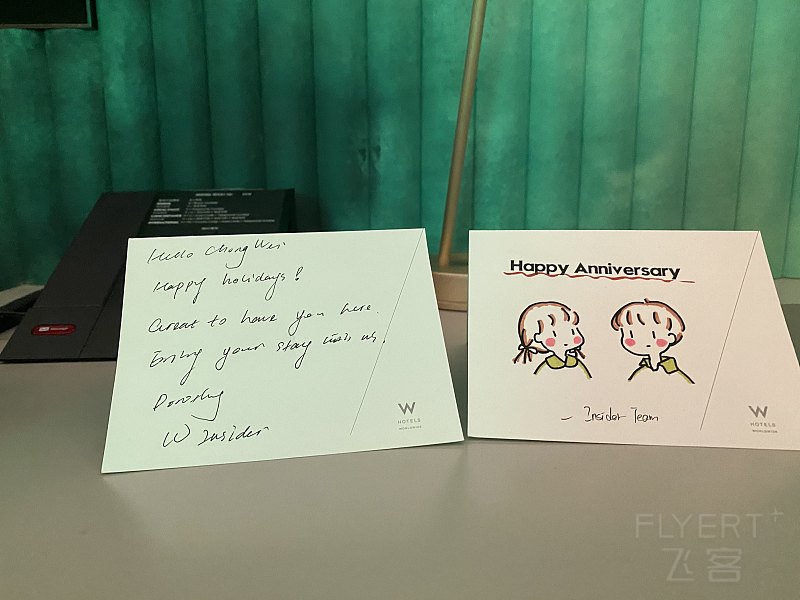 Hello Chong Wei
Happy holidays!
Great to have you here.
Enjoy your stay with us.
W Insider
W
HOTELS
WORLDWIDE
Happy Anniversary
- Insider Team
W
HOTELS
WORLDWIDE
FLYERT
飞客